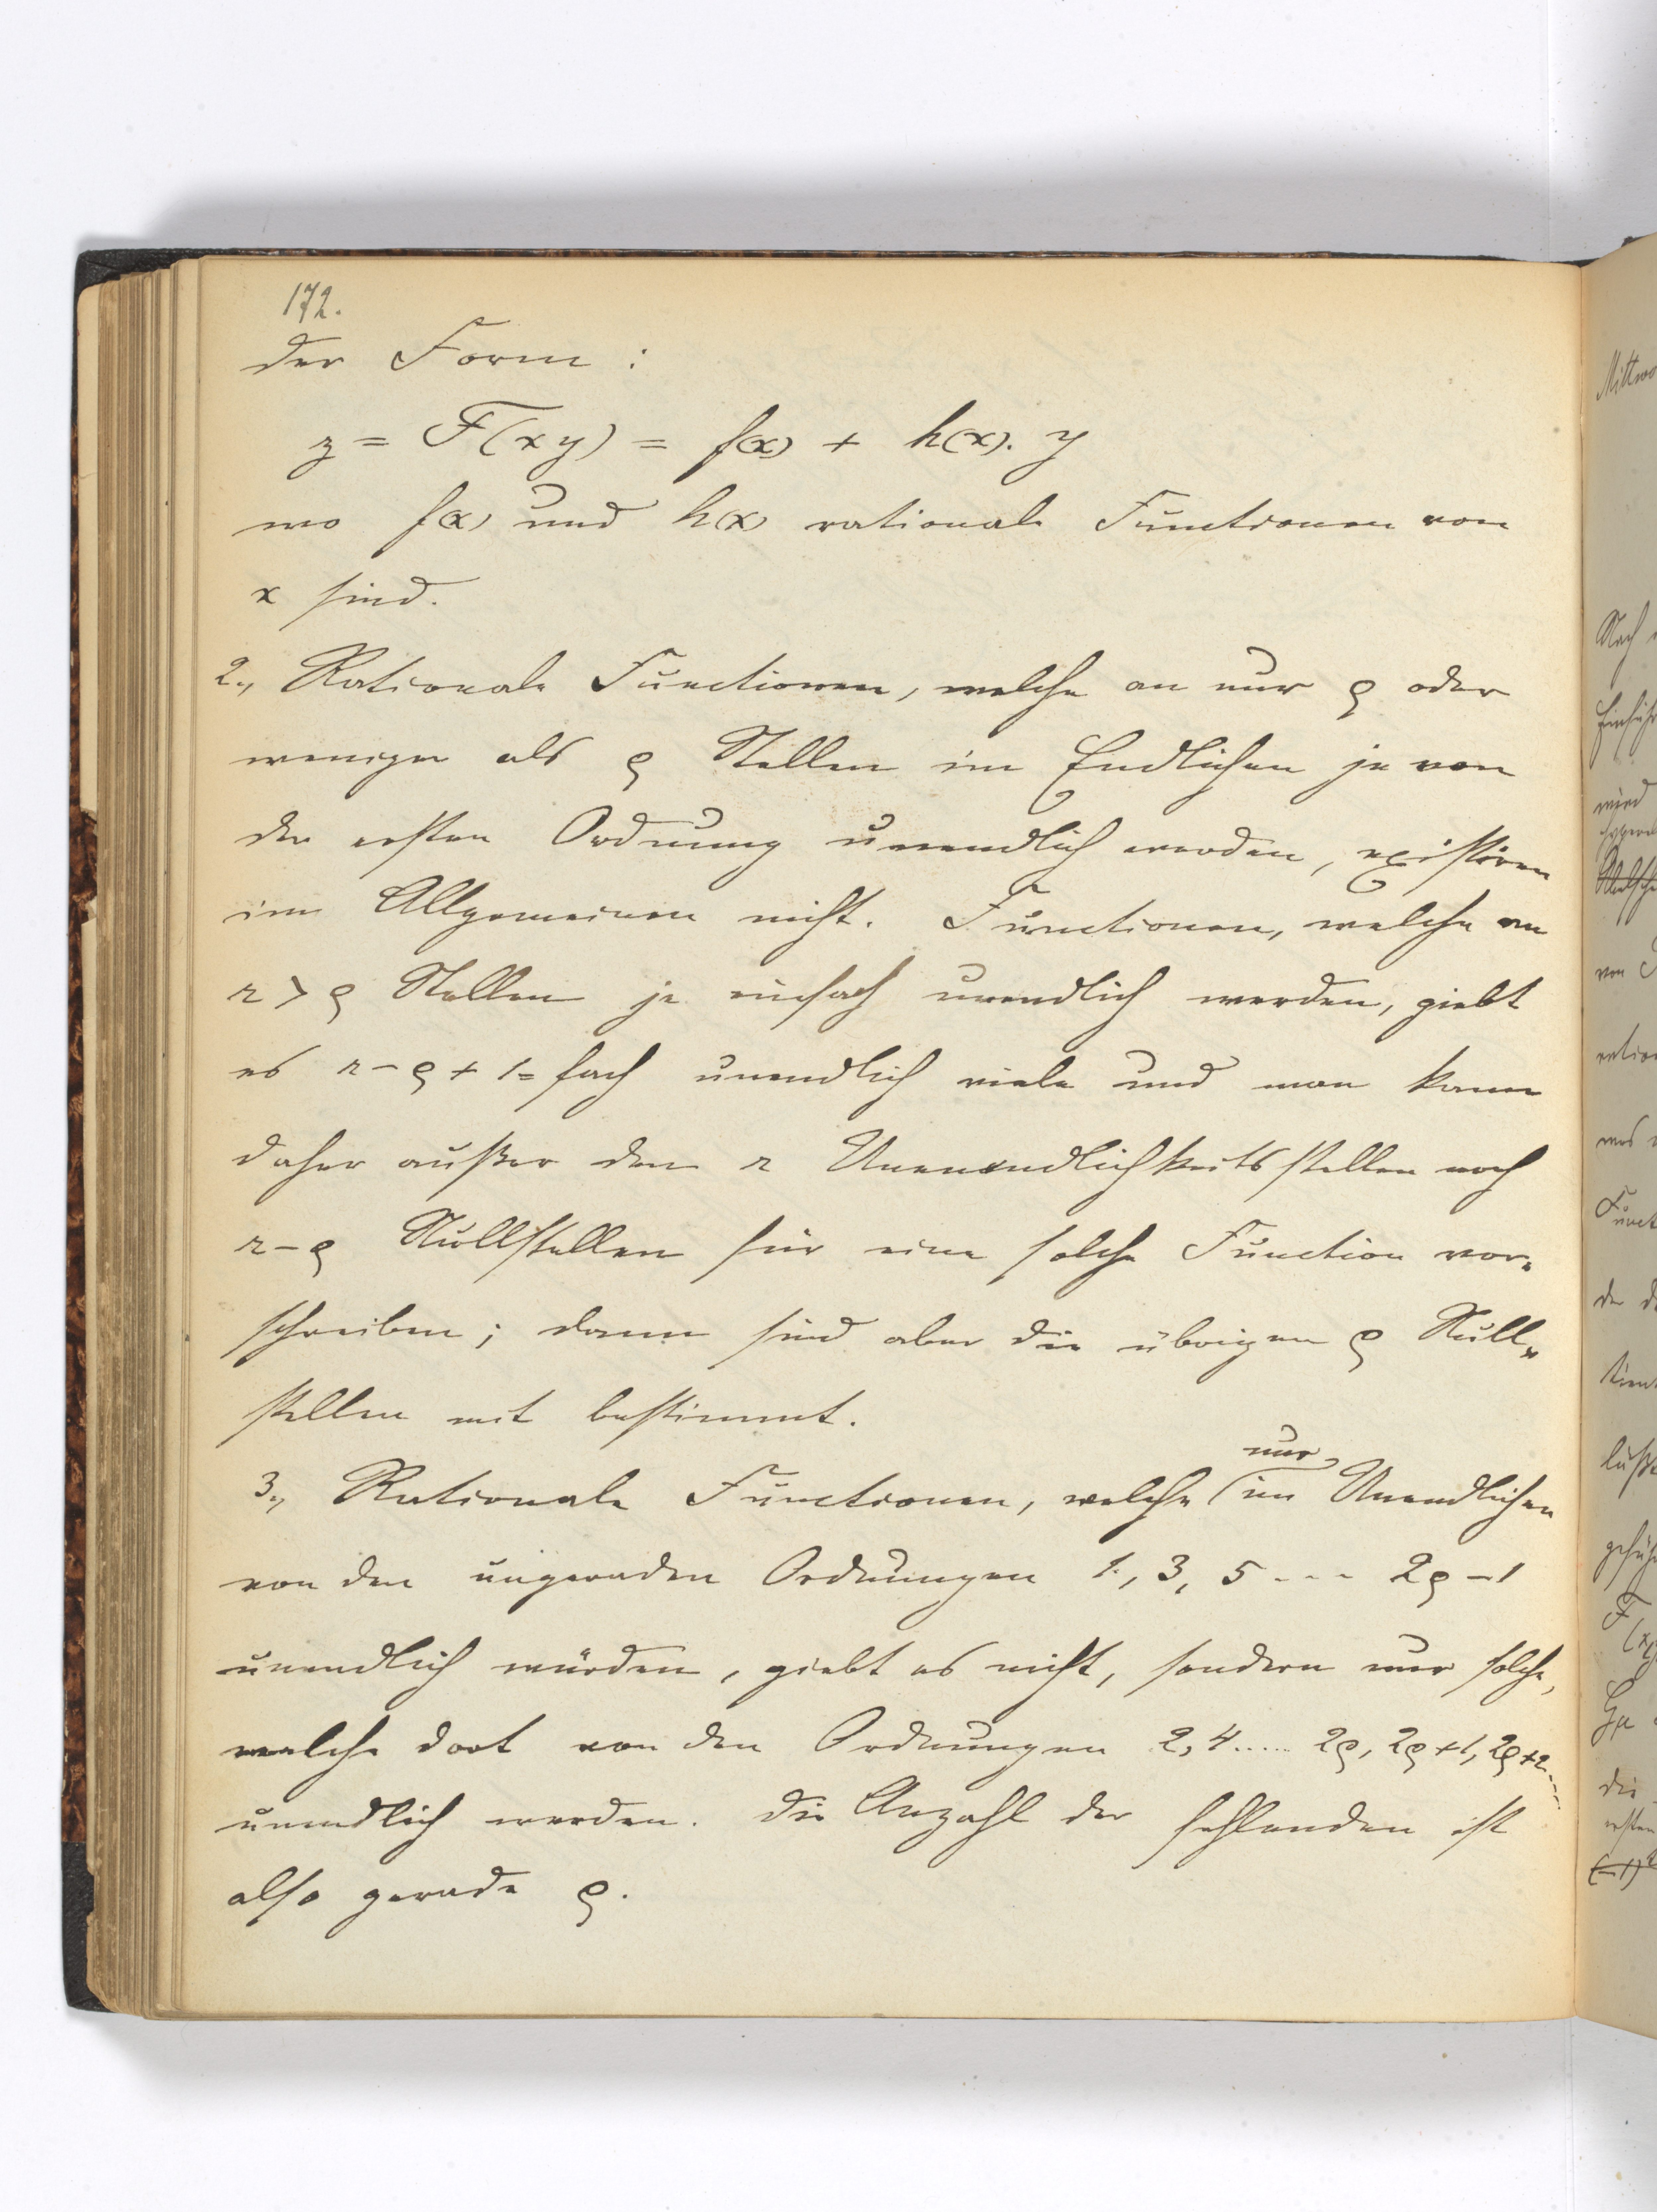 172.
der Form :
z = F(xy) = f(x) + h(x). y
wo f(x) und h(x) rationale Functionen von
x sind.
2., Rationale Functionen, welche an nur ϱ oder
weniger als ϱ Stellen im Endlichen je von
der ersten Ordnung unendlich werden, existiren
im Allgemeinen nicht. Functionen, welche an
r > ϱ Stellen je einfach unendlich werden, giebt
es r – ϱ + 1= fach unendlich viele und man kann
daher außer den r Unendlichkeitsstellen noch
r – ϱ Nullstellen für eine solche Function vor-
schreiben; dann sind aber die übrigen ϱ Null-
stellen mit bestimmt.
3., Rationale Functionen, welche nur im Unendlichen
von den ungeraden Ordnungen 1, 3, 5 - - - 2ϱ – 1
unendlich würden, giebt es nicht, sondern nur solche,
welche dort von den Ordnungen 2, 4 ..... 2ϱ, 2ϱ+1, 2ϱ+2 ....
unendlich werden. Die Anzahl der fehlenden ist
also gerade ϱ.
Mittwo
Nach
wird
von
Funct
die